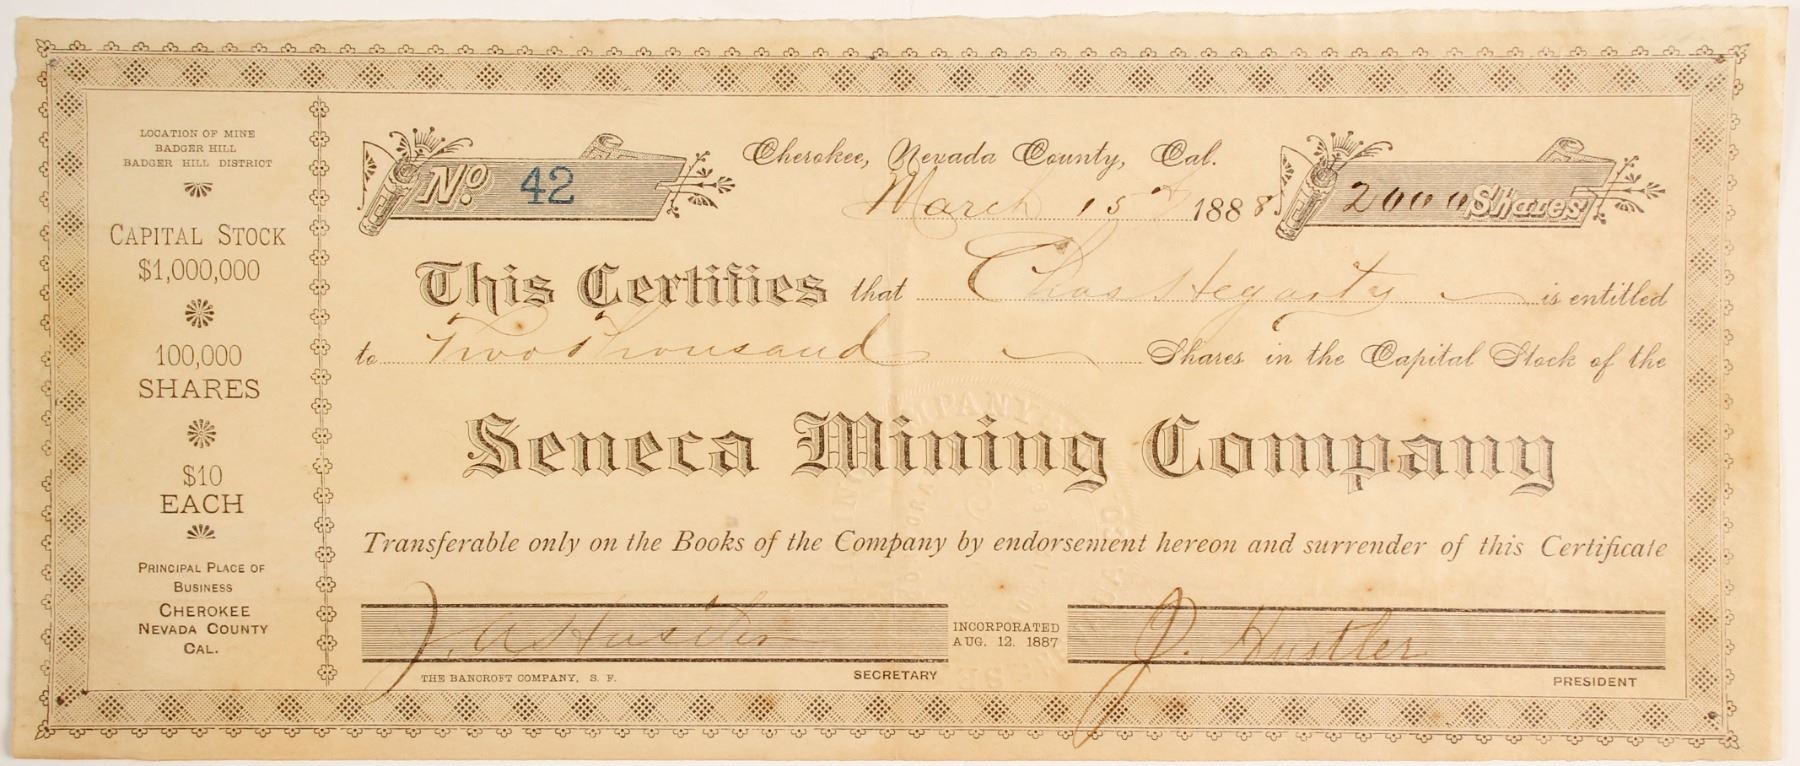 LOCATION OF MINE
BADGER HILL
BADGER HILL DISTRICT
CAPITAL STOCK
$1,000,000
100,000
SHARES
$10
EACH
PRINCIPAL PLACE OF
BUSINESS
CHEROKEE
NEVADA COUNTY
CAL.
No. 42
Cherokee, Nevada County, Cal.
March 15th 1888
2000 Shares
This Certifies that Chas Hegarty is entitled
to Two Thousand Shares in the Capital Stock of the
Seneca Mining Company
Transferable only on the Books of the Company by endorsement hereon and surrender of this Certificate
J. A. Hustler
SECRETARY
THE BANCROFT COMPANY, S. F.
INCORPORATED
AUG. 12. 1887
J. Hustler
PRESIDENT